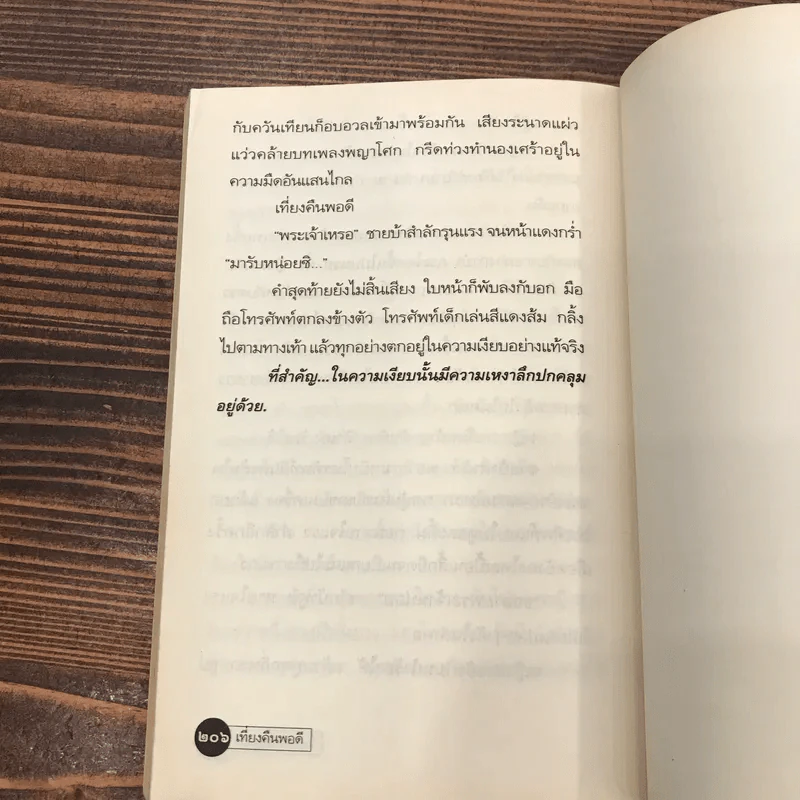 กับควันเทียนก็อบอวลเข้ามาพร้อมกัน เสียงระนาดแผ่ว
แว่วคล้ายบทเพลงพญาโศก กรีดท่วงทำนองเศร้าอยู่ใน
ความมืดอันแสนไกล
เที่ยงคืนพอดี
"พระเจ้าเหรอ" ชายบ้าสำลักรุนแรง จนหน้าแดงกร่ำ
"มารับหน่อยซิ..."
คำสุดท้ายยังไม่สิ้นเสียง ใบหน้าก็พับลงกับอก มือ
ถือโทรศัพท์ตกลงข้างตัว โทรศัพท์เด็กเล่นสีแดงส้ม กลิ้ง
ไปตามทางเท้า แล้วทุกอย่างตกอยู่ในความเงียบอย่างแท้จริง
ที่สำคัญ...ในความเงียบนั้นมีความเหงาลึกปกคลุม
อยู่ด้วย.
๒๐๖ เที่ยงคืนพอดี